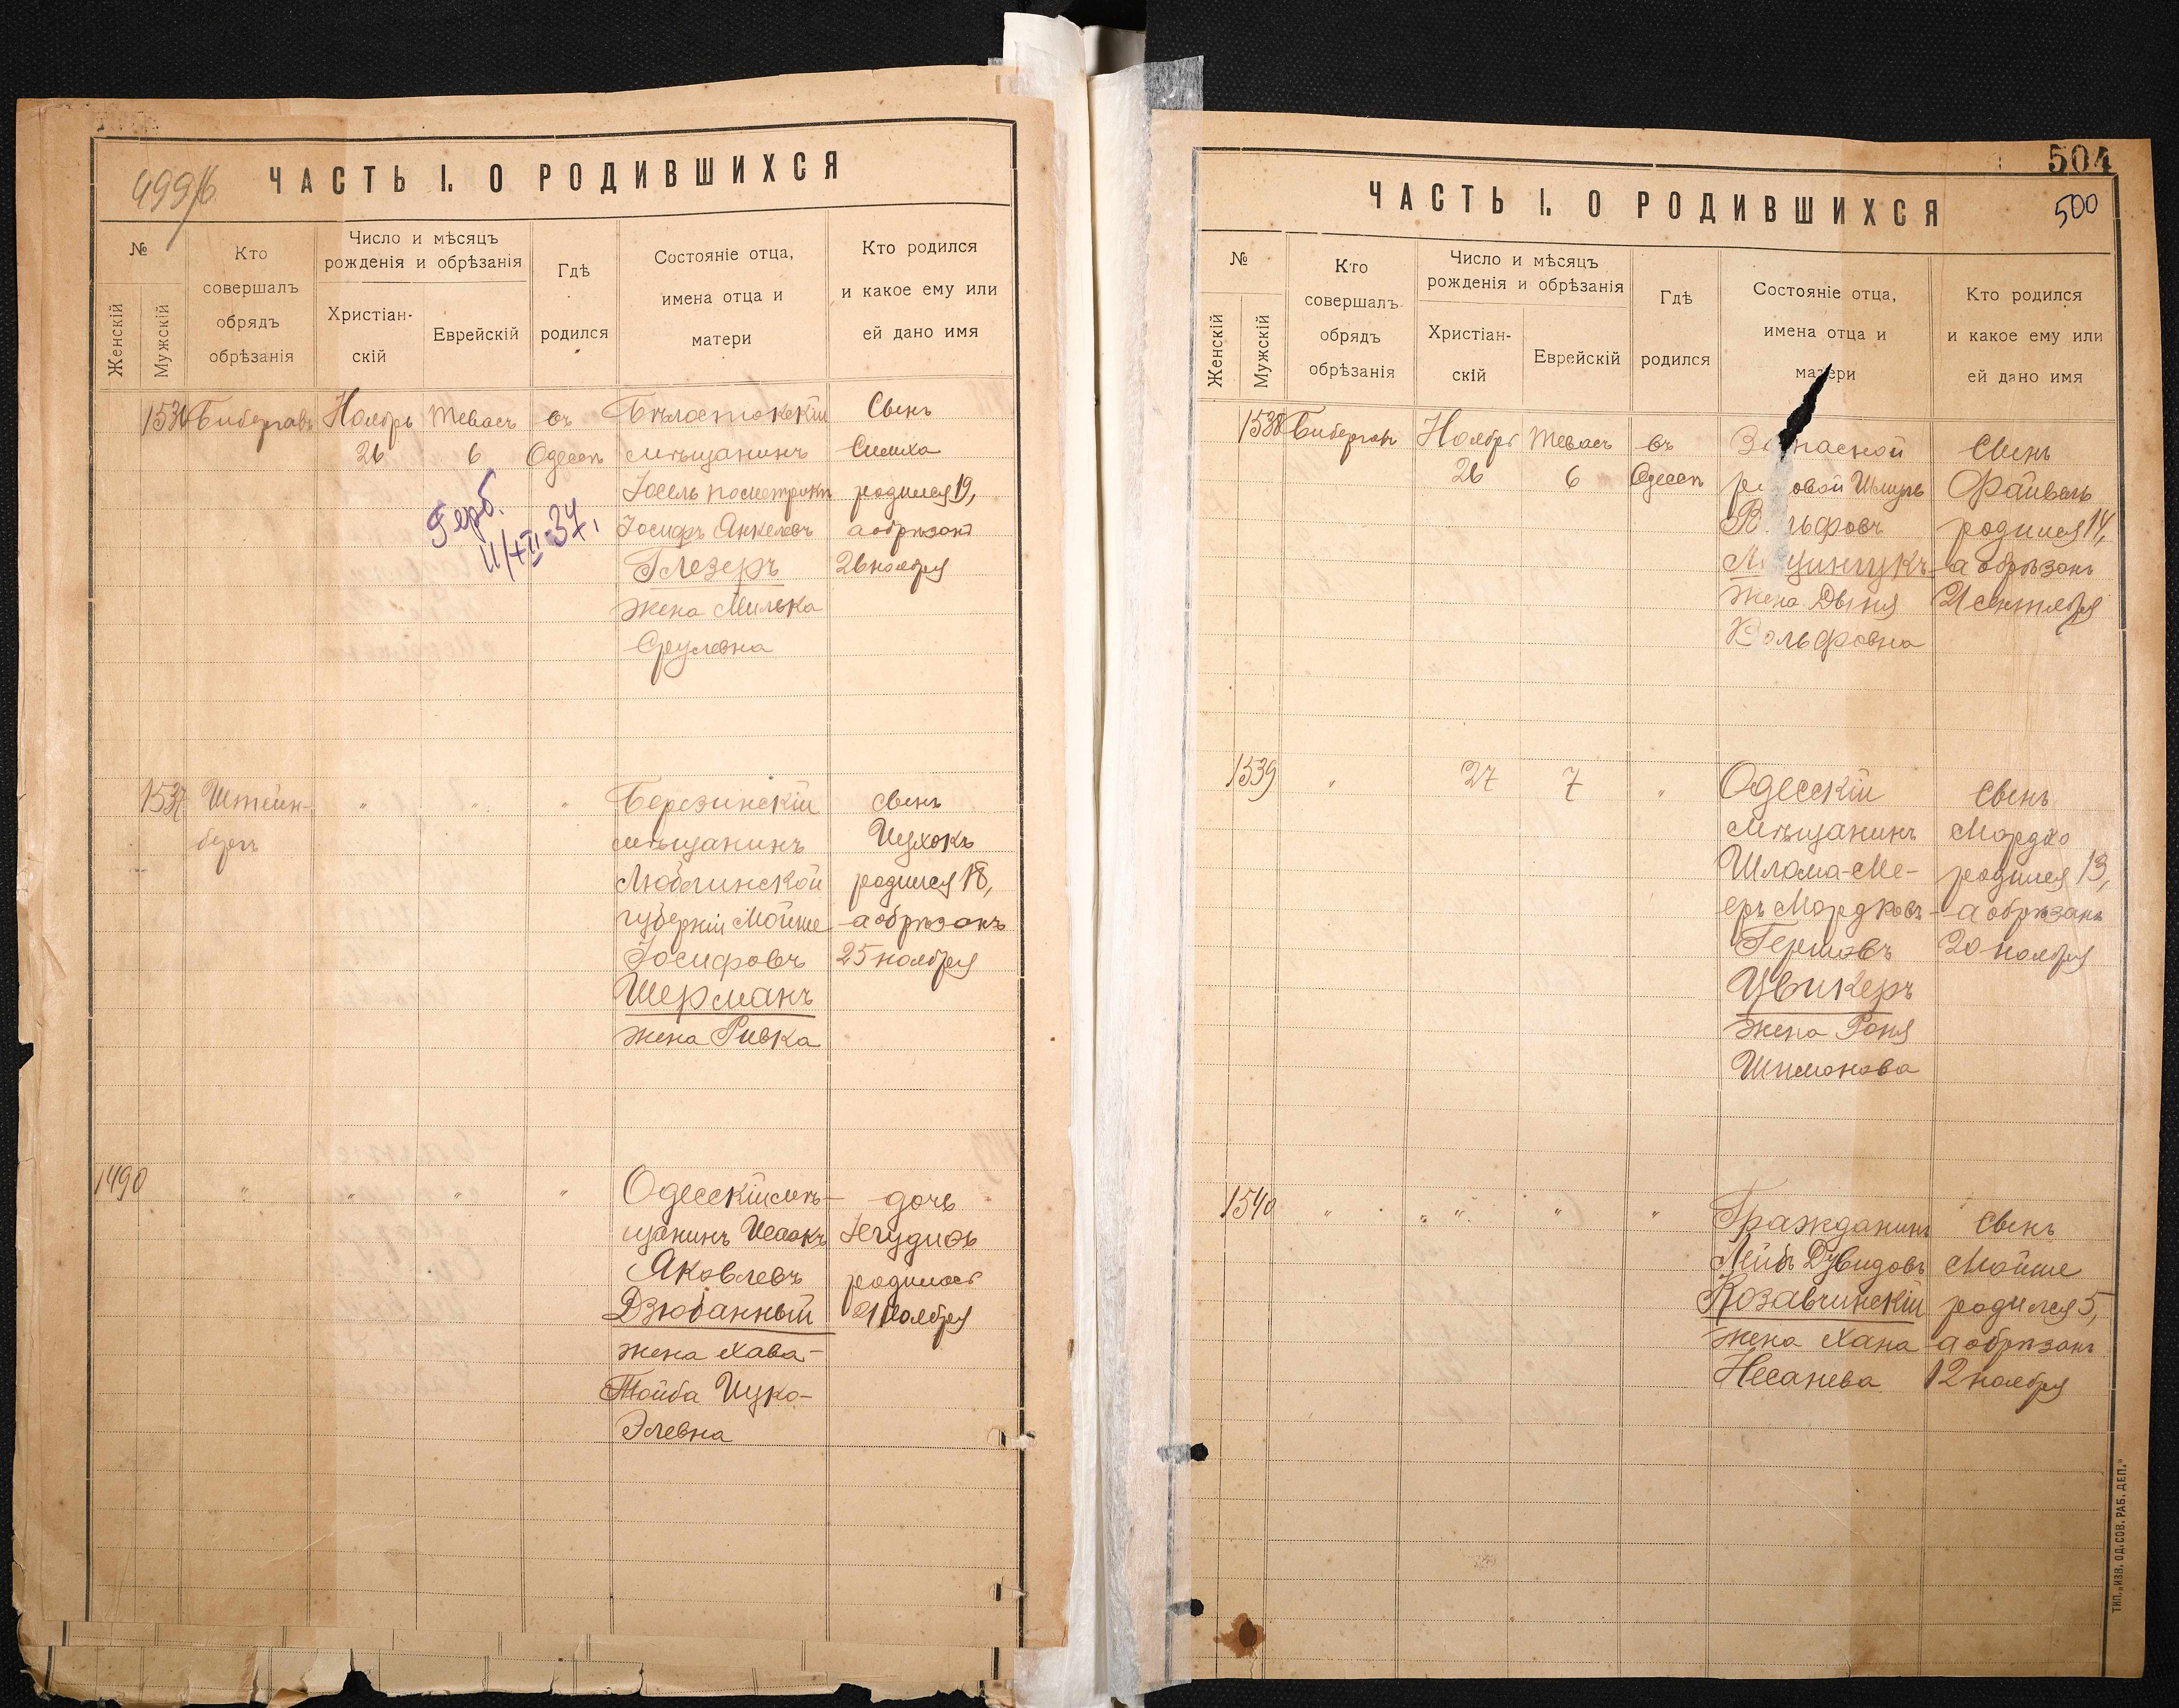 499/б
ЧАСТЬ I. О РОДИВШИХСЯ
№
Женскій
Мужскій
Кто
совершалъ
обрядъ
обрѣзанія
Число и мѣсяцъ
рожденія и обрѣзанія
Христіан-
скій
Еврейскій
Гдѣ
родился
Состояніе отца,
имена отца и
матери
Кто родился
и какое ему или
ей дано имя
1536
Ноябрь
26
Тевасъ
6
въ
Одессѣ
Бѣлостокскій
мѣщанинъ
Іосель
Іосифъ Анкелевъ
Глезеръ
жена Милька
Срулевна
Сынъ
Симха
родился 19,
а обрѣзанъ
26 ноября
Герб.
11/XII-37.
1537
Штейн-
бергъ
"
"
"
Березинскій
мѣщанинъ
Люблинской
губерніи Мойше
Іосифовъ
Шерманъ
жена Ривка
Сынъ
Ицхокъ
родился 18,
а обрѣзанъ
25 ноября
1490
"
"
"
"
Одесскій мѣ-
щанинъ Исаакъ
Яковлевъ
Дзюбанный
жена Хава-
Тойба Ицко-
Элевна
дочь
Іегудисъ
родилась
21 ноября
504
500
ЧАСТЬ I. О РОДИВШИХСЯ
№
Женскій
Мужскій
Кто
совершалъ
обрядъ
обрѣзанія
Число и мѣсяцъ
рожденія и обрѣзанія
Христіан-
скій
Еврейскій
Гдѣ
родился
Состояніе отца,
имена отца и
матери
Кто родился
и какое ему или
ей дано имя
1538
Ноябрь
26
Тевасъ
6
въ
Одессѣ
овой Шмуль
жена Двыня
Вольфовна
Сынъ
Файвель
родился 14,
а обрѣзанъ
21 сентября
1539
"
27
7
"
Одесскій
мѣщанинъ
Шлома-Ме-
еръ Мордковъ-
Гершовъ
Цвикеръ
жена Роня
Шимонова
Сынъ
Мордко
родился 13,
а обрѣзанъ
20 ноября
1540
"
" "
"
"
Гражданинъ
Лейбъ Дувидовъ
Козавчинскій
жена Хана
Несанева
Сынъ
Мойше
родился 5,
а обрѣзанъ
12 ноября
ТИП. „ИЗВ. ОД. СОВ. РАБ. ДЕП."